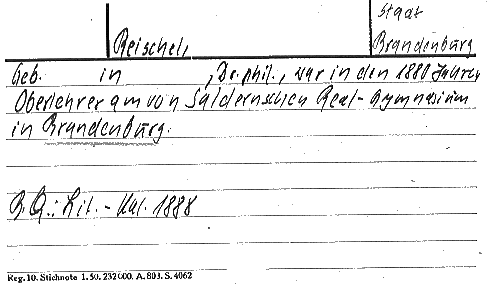 Stadt
Reischel,
Brandenburg
Geb. in , Dr. phil., war in den 1880 Jahren
Oberlehrer am von Saldernschen Real-Gymnasium
in Brandenburg.
B.Q.: Lit.-Kal. 1888
Reg. 10. Stichnote 1. 50. 232000. A. 803. S. 4062